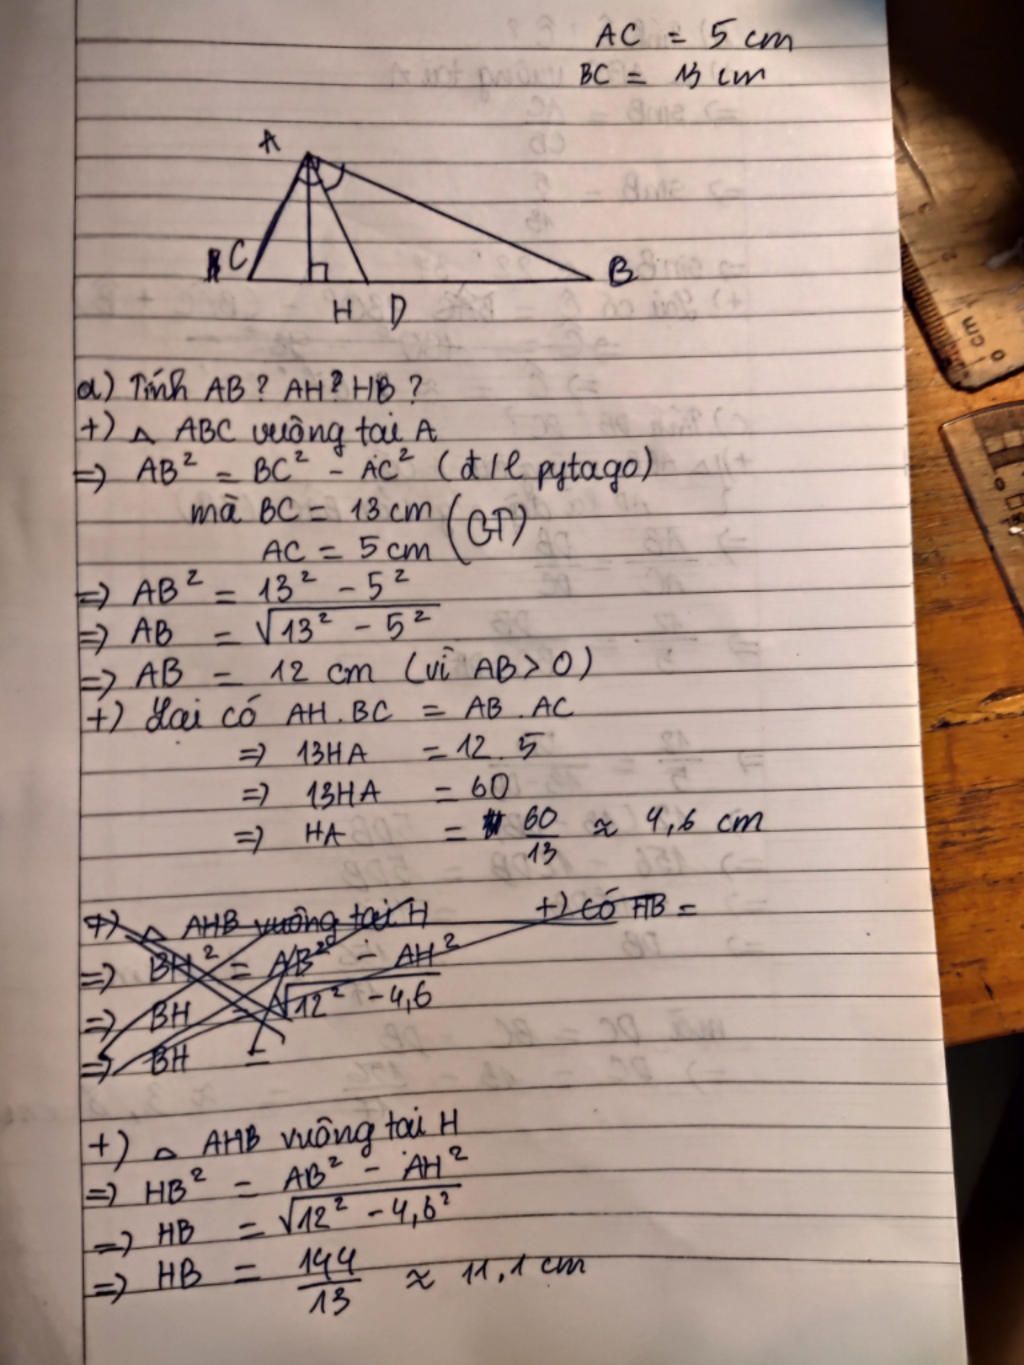 AC = 5 cm
BC = 13 cm
A
C
B
H D
a) Tính AB? AH? HB?
+) △ ABC vuông tại A
=> AB² = BC² - AC² (đ/l pytago)
mà BC = 13 cm (GT)
AC = 5 cm
=> AB² = 13² - 5²
=> AB = √13² - 5²
=> AB = 12 cm (vì AB > 0)
+) Lại có AH.BC = AB.AC
=> 13HA = 12.5
=> 13HA = 60
=> HA = 60/13 ≈ 4,6 cm
+) △ AHB vuông tại H +) có HB =
=> BH² = AB² - AH²
=> BH = √12² - 4,6
=> BH =
+) △ AHB vuông tại H
=> HB² = AB² - AH²
=> HB = √12² - 4,6²
=> HB = 144/13 ≈ 11,1 cm